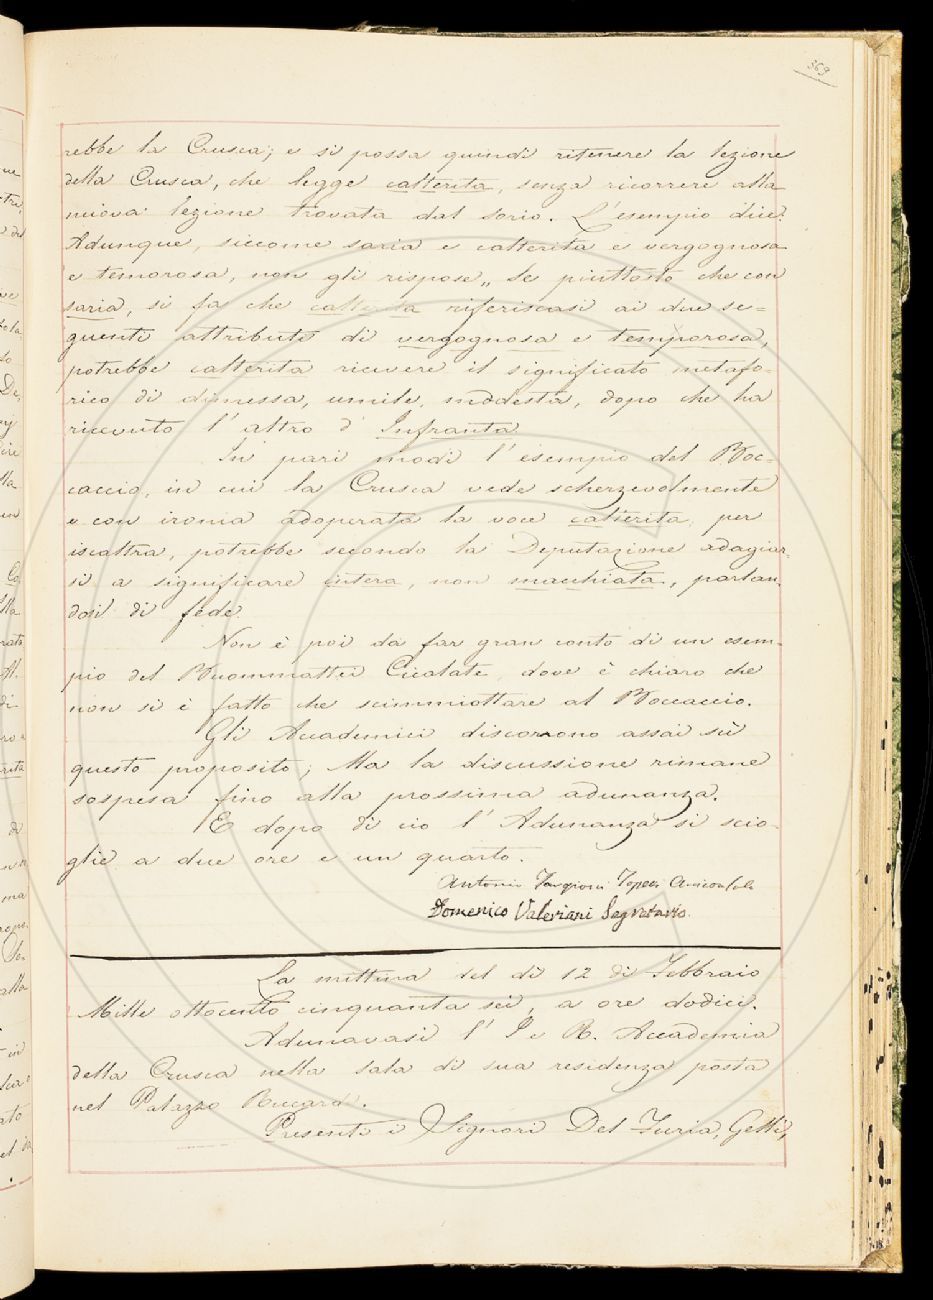 369
rebbe la Crusca; e si possa quindi ritenere la lezione
della Crusca, che legge calterita, senza ricorrere alla
nuova lezione trovata dal sorio. L'esempio dice:
Adunque, siccome saria e calterita e vergognosa
e temorosa, non gli rispose„ Se piuttosto che con
saria, si fa che calterita riferiscasi ai due se=
guenti attributi di vergognosa e temporosa,
potrebbe calterita ricevere il significato metafo=
rico di dimessa, umile, modesta, dopo che ha
ricevuto l'altro d'Infranta.
In pari modi l'esempio del Boc=
caccio, in cui la Crusca vede scherzevolmente
e con ironia adoperata la voce calterita, per
iscaltra, potrebbe secondo la Deputazione adagiar-
si a significare intera, non macchiata, parlan-
dosi di fede.
Non è poi da far gran conto di un esem-
pio del Buommattei Cicalate, dove è chiaro che
non si è fatto che scimmiottare al Boccaccio.
Gli Accademici discorrono assai sù
questo proposito; Ma la discussione rimane
sospesa fino alla prossima adunanza.
E dopo di ciò l'Adunanza si scio-
glie a due ore e un quarto.
Antonio Targioni Tozzetti Arciconsolo
Domenico Valeriani Segretario.
La mattina del dì 12 di Febbraio
Mille ottocento cinquanta sei, a ore dodici.
Adunavasi l'I e R. Accademia
della Crusca nella sala di sua residenza posta
nel Palazzo Riccardi.
Presenti i Signori Del Furia, Gelli,